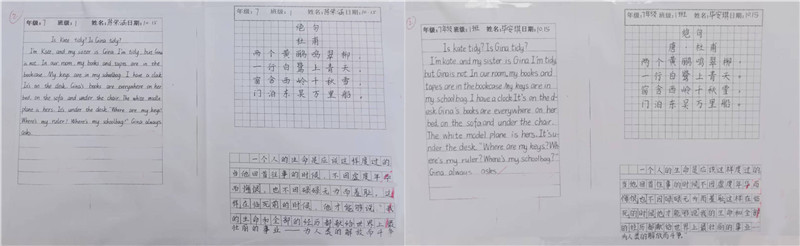 年级:7 班级:1 姓名: 日期:10.15
Is Kate tidy? Is Gina tidy?
I'm Kate, and my sister is Gina. I'm tidy, but Gina
is not. In our room, my books and tapes are in the
bookcase. My keys are in my schoolbag. I have a clock.
It's on the desk. Gina's books are everywhere on her
bed, on the sofa and under the chair. The white model
plane is hers. It's under the desk. "Where are my keys?
Where's my ruler? Where's my schoolbag?" Gina always
asks.
年级:7 班级:1 姓名: 日期:10.15
绝句
杜甫
两个黄鹂鸣翠柳,
一行白鹭上青天。
窗含西岭千秋雪,
门泊东吴万里船。
一个人的生命是应该这样度过的
当他回首往事的时候,不因虚度年
而悔恨,也不因碌碌无为而羞耻,这
样在临死前的时候,他才能够说"我
的生命和全部的经历都献给世界上最
壮丽的事业——为人类的解放而斗争
年级: 班级:1班 姓名: 日期:10.15
Is Kate tidy? Is Gina tidy?
I'm Kate and my sister is Gina. I'm tidy,
but Gina is not. In our room, my books and
tapes are in the bookcase. My keys are in
my schoolbag. I have a clock. It's on the d-
esk. Gina's books are everywhere on her
bed, on the sofa and under the chair.
The white model plane is hers. It's u-
nder the desk. "Where are my keys? Wh-
ere's my ruler? Where's my schoolbag?"
Gina always asks.
年级: 班级:1班 姓名: 日期:10.15
绝句
唐·杜甫
两个黄鹂鸣翠柳,
一行白鹭上青天。
窗含西岭千秋雪,
门泊东吴万里船。
一个人的生命是应该这样度过的
当他回首往事的时候不因虚度年
悔恨也不因碌碌无为而羞耻这样在临
死的时候他才能够说我的生命和全
部的经历都献给世界上最壮丽的事业——
为人类的解放而斗争。